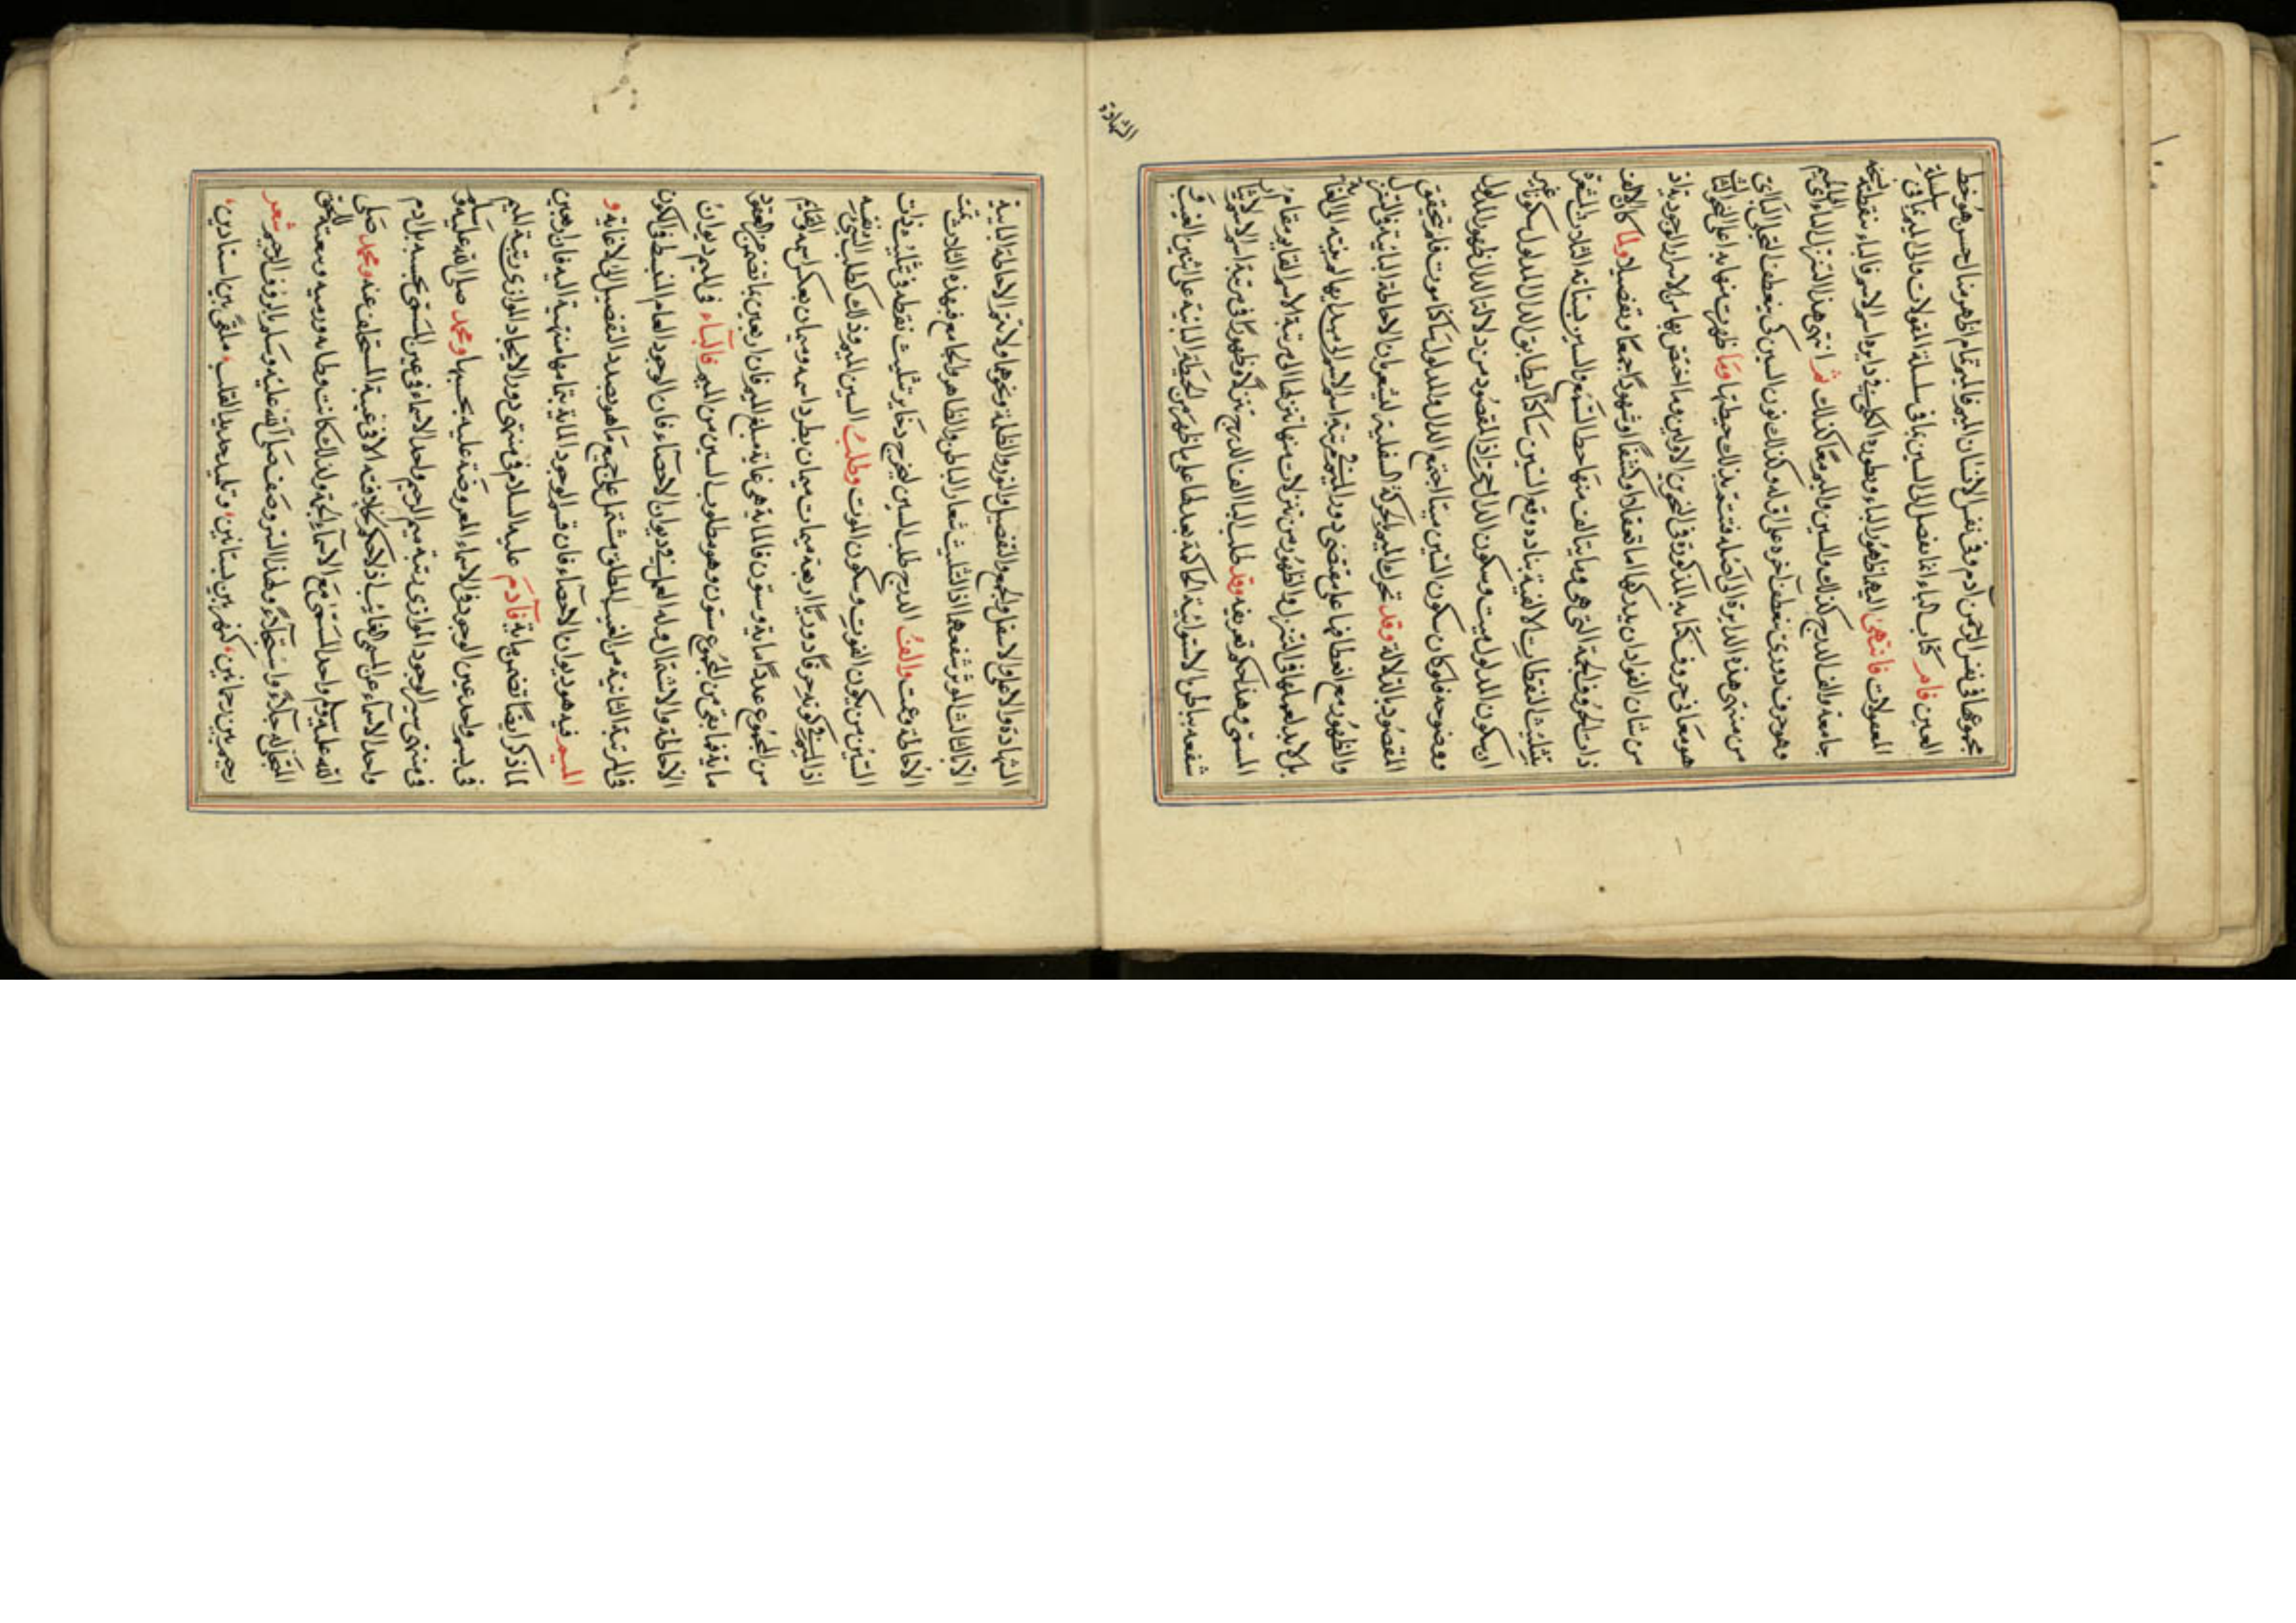 مجموعها في نفس الرحمن آدم وفي نفس الانسان الميم فالميم تمام اظهر منال حسن هو خط
العين فامر كتاب الباء انما يفصل الى السين بما في سلسلة المقولات والى الميم بما في سلسلة
المعمولات فانتهى اليها ظهور الباء وبطوره الكلي في دايرة اسم الاسم فالباء نقطة
جامعه والف الدرج كذلك والسين والميم معا كذلك ثم انتهى هذا التنزل الباءي الى الميم
وهو حرف دوري منعطف آخره على اوله وكذلك نون السين كي ينعطف التجلي الباءي
من منتهى هذه الدايرة الى اصله فتتم بذلك حيطتها وما ظهرت منها به اعلى النحو
هو معاني حروف كتابه المذكورة في النحوين الاولين وما اختص بها من الاسرار الوجودية اذ
من شان الفواد ان يدركها اما تعقلا او كشفا او شهودا جمعا وتفصيلا ولما كان الالف
ذات الحروف الجمة التي هي وما يتالف منها حظ السمع والسين بسناته الثلاث المشعرة
بتثليث النقطات الالفية بناده وقع السين ساكنا ليطابق الدال المدلول سكونا غير
ان سكون المدلول ميت وسكون الدال حي اذ المقصود من دلالتنا للدال ظهور المدلول
ووضوحه فلو كان سكون السين ميتا اجتمع الدال والمدلول ساكنا موت فلم يتحقق
المقصود بالدلالة وقد تحرك الميم بالحركة السفلية ليشعر بان الاحاطة البائية في التنزل
والظهور مع انعطافها على مقتضى دور الميم في مرتبة اسم الاسم الى مبدا بها لم ينته الى الغاية
بل لا بد لعملها في التنزل والظهور من تنزلات منها تنزلها الى مرتبة الاسم القايم مقام
المسمى وهذا حكم تعريفه وقد طلب الباء الف الدرج تنزلا وظهورا في مرتبة اسم الاسم لاثبات
شفعه بباطن الاستوائية الحاكمة بعدلها على ما ظهر من الحيطة البائية على شين الغيب و
الشهادة
الشهادة والاعلى والاسفل والجمع والتفصيل والنور والظلمة ونحوها ولا تتم الاحاطة البائية
الا بالثالث الموتر شفعهما اذ التثليث شعار الباطن والظاهر والجامع فبهذه الثلاث تمت
الاحاطة وعمت والف الدرج طلب السين ليخرج ذخاير تثليث نقطه في ثلاث ذات
السين من يكون الفوت وسكون الموت وطلب السين الميم وذلك كطلب الشيء نفسه
اذ الميم في كونه حرفا دوريا اربعة ميمات ميمان بطرد اسمه وميمان بعكس اسمه والقايم
من المجموع عددا ماية وستون فالماية هي غاية مبلغ الميم فان اربعين ما تضمن من العقود
ماية فما بقي من المجموع ستون وهو مطلوب السين من الميم فالباء في الميم ديوان
الاحاطة والاشتمال وله العمل في ديوان الاحصاء فان الوجود العام المنبسط في الكون
في المرتبة الثانية من الغيب المطلق مشتمل على جميع ما هو بصدد التفصيل الى لا غاية و
الميم فيه هو ديوان الاحصاء فان قسم الوجود الماية بتمامها منتهية اليه فان اربعين
لما ذكر ايضا تضمن ماية فآدم عليه السلام في منتهى دور الايجاد الموازي رتبة الميم
في بسم واحد عين الوجود في الاسماء المعروضة عليه بحسبها ومحمد صلى الله عليه وسلم
في منتهى سير الوجود الموازي رتبة ميم الرحيم واحد الاسماء في عين المسمى بحسبه بل آدم
واحد الاسماء عن المسمى الغايب اذ لا حكم لخلافته الا في غيبة المستخلف عنه ومحمد صلى
الله عليه وسلم واحد المسمى مع الاسماء الجمة ولذلك كانت وطاءه ورميه وبيعته للحق
المتجلي له جلاء واستجلاء ولهذا السر وصف صلى الله عليه وسلم بالرؤف الرحيم شعر
رحيم بين رحمانين، كنهر بين بستانين، وتليد حديد القلب، ملقى بين استادين،